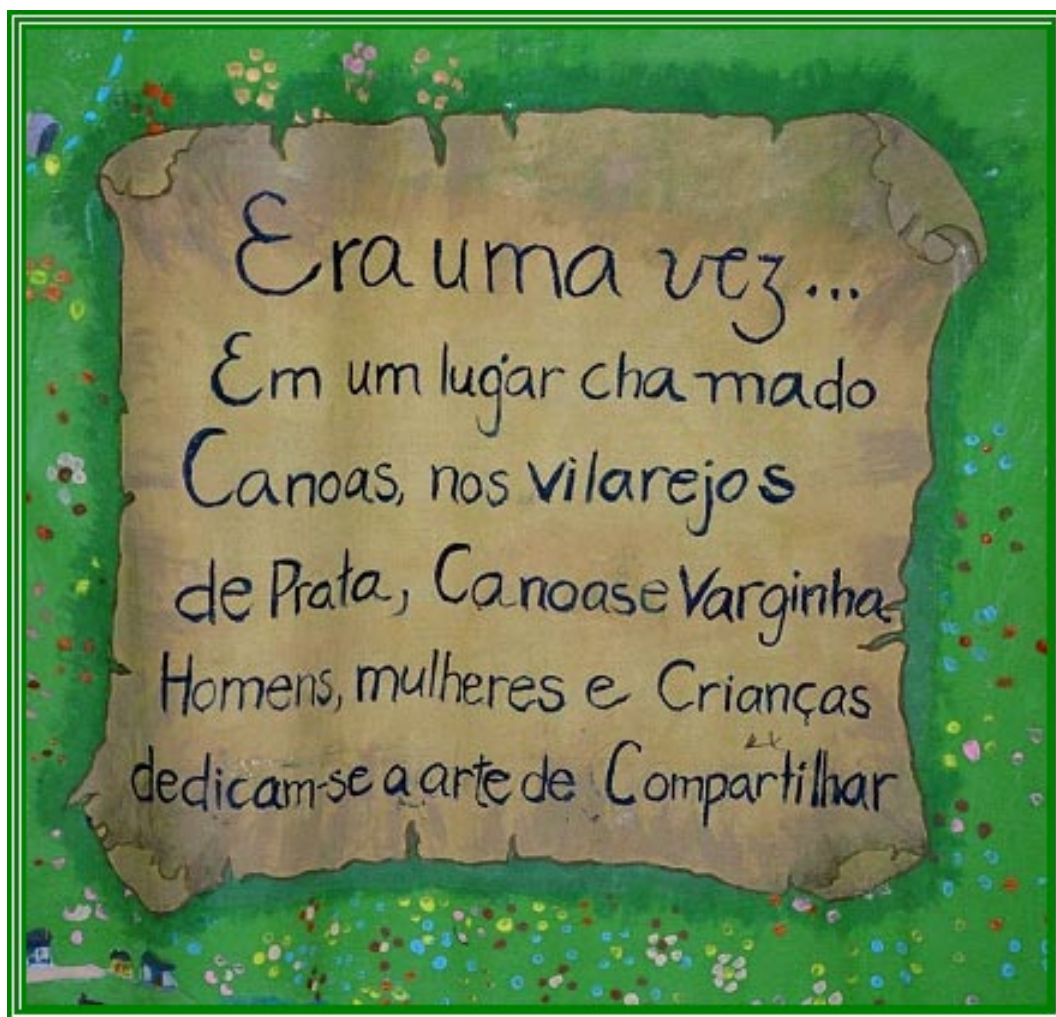 Era uma vez...
Em um lugar chamado
Canoas, nos vilarejos
de Prata, Canoas e Varginha
Homens, mulheres e Crianças
dedicam-se a arte de Compartilhar